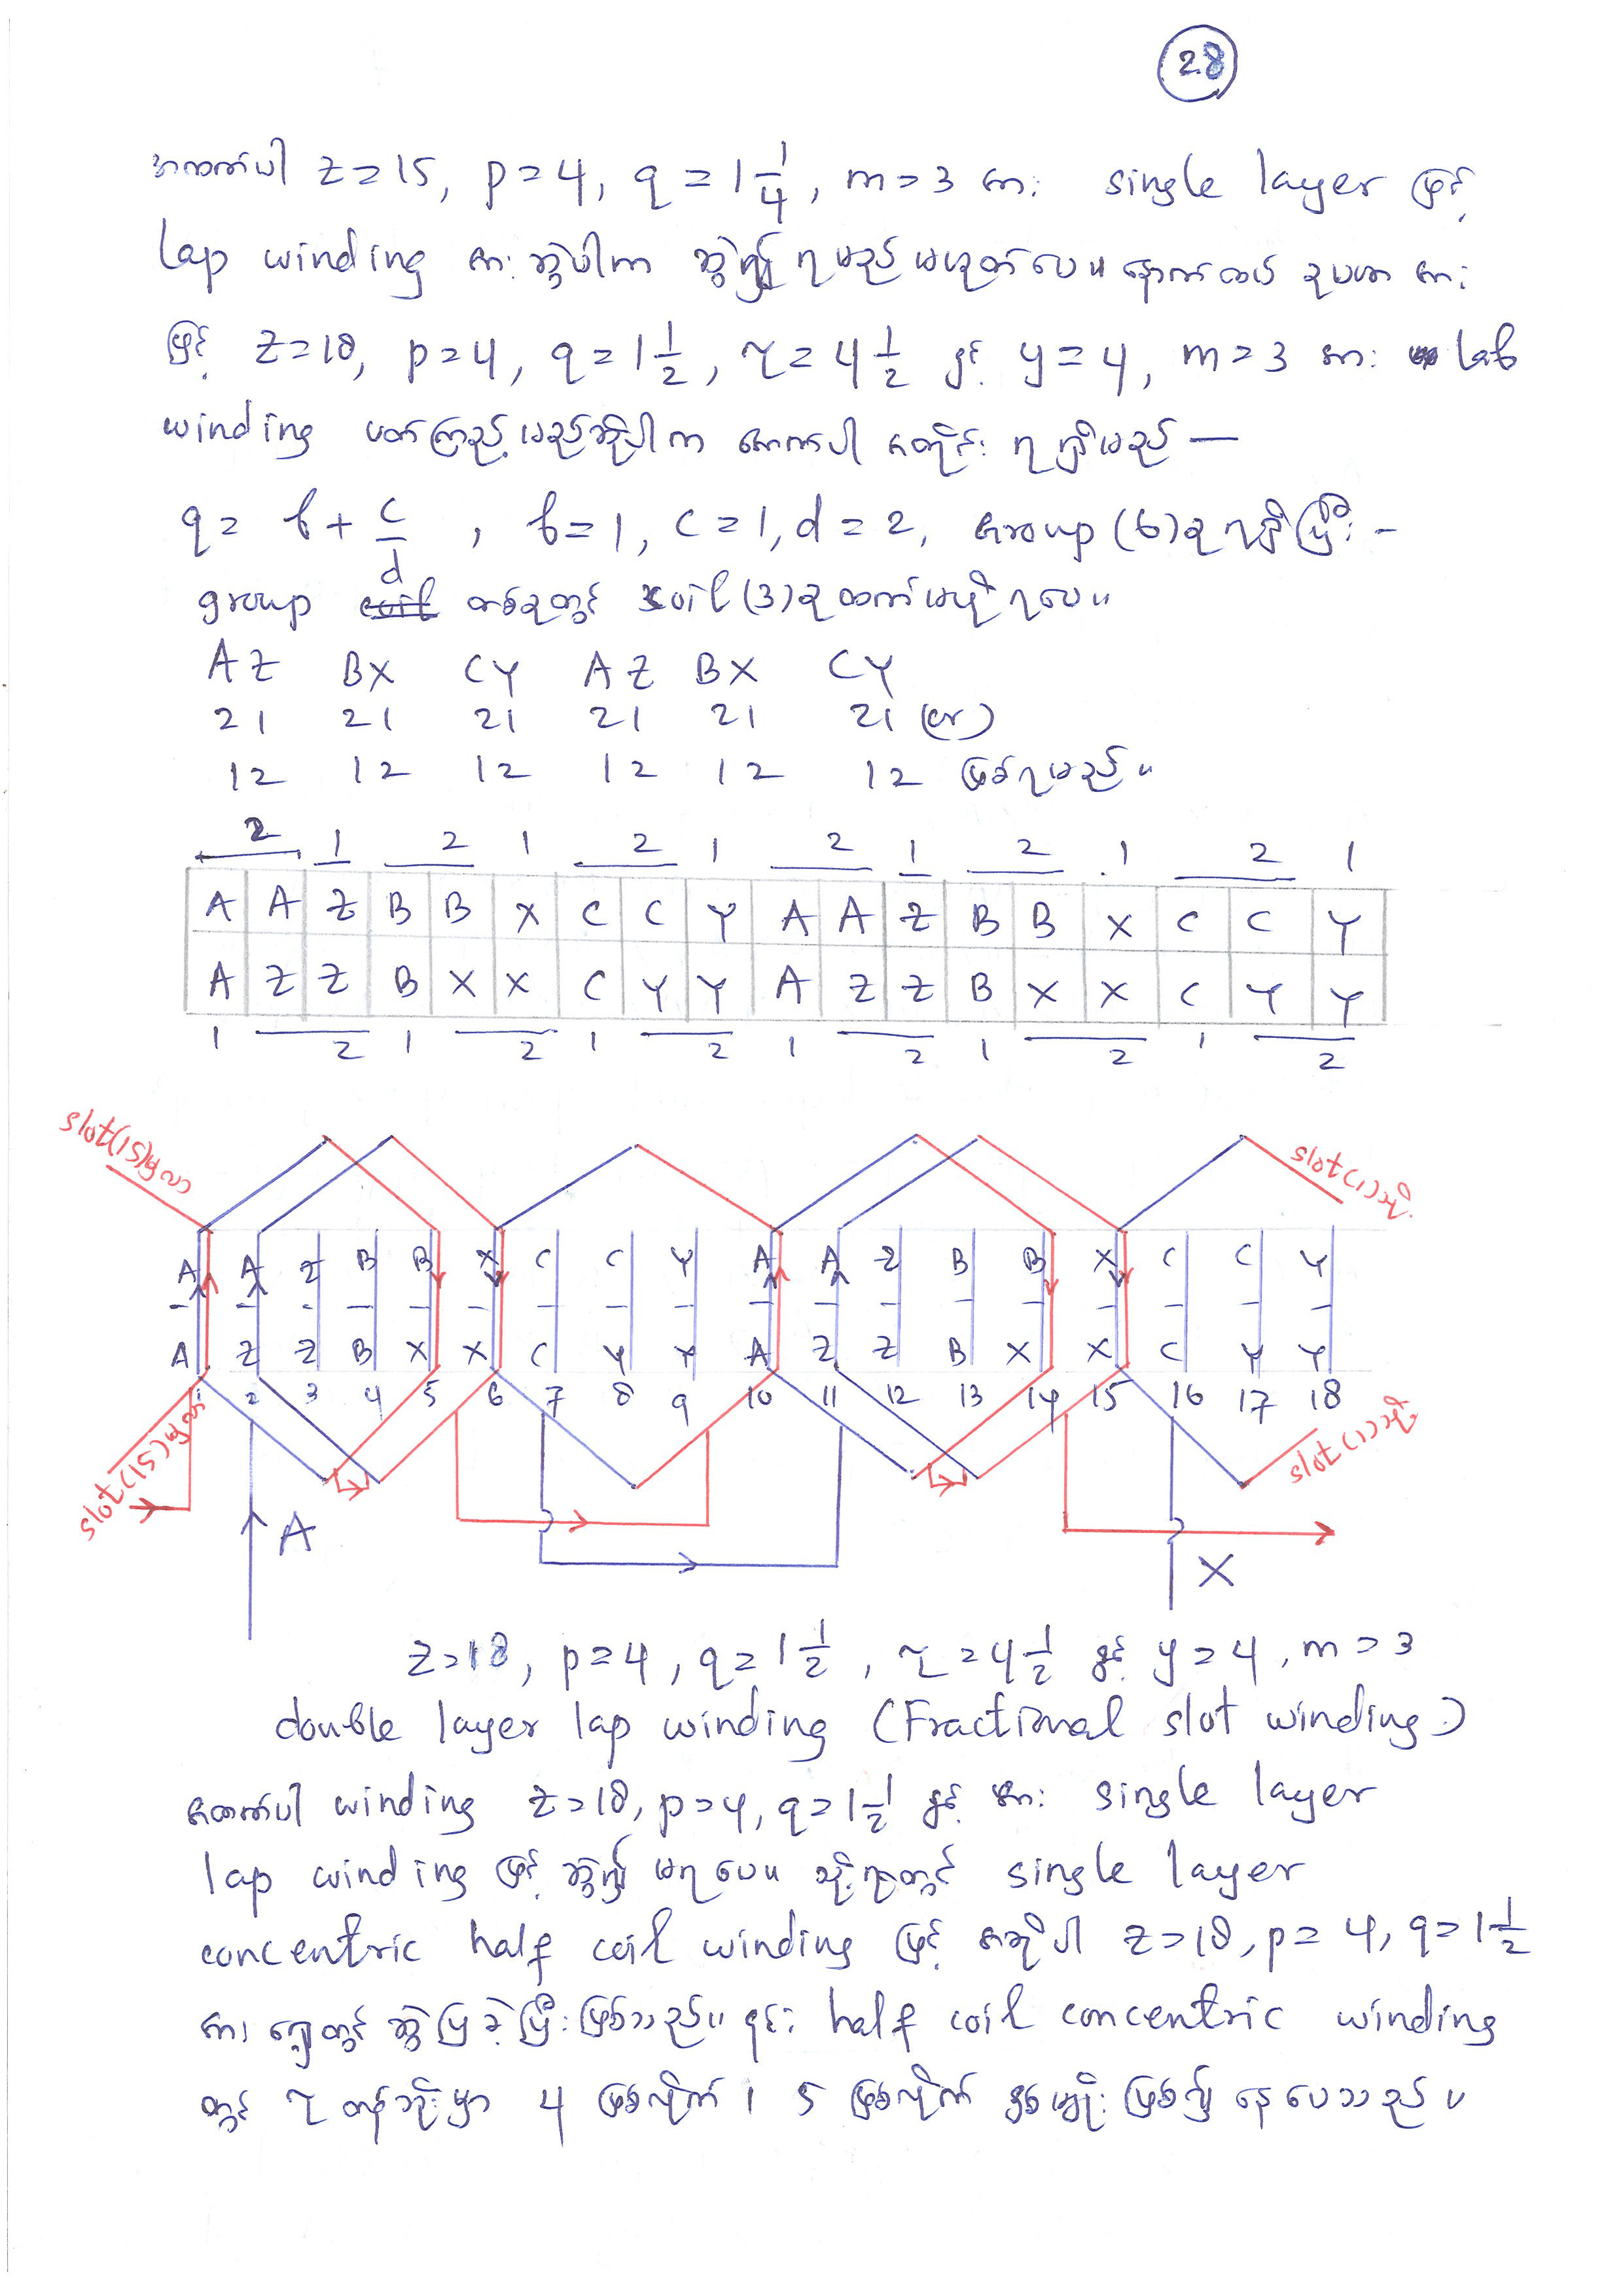 28
အထက်ပါ z=15, p=4, q=1 1/4, m=3 အား single layer ဖြင့်
lap winding အား ဆွဲပါက ဆွဲ၍ ရမည် မဟုတ်ပေ။ နောက်ထပ် ဥပမာ အား
ဖြင့် z=18, p=4, q=1 1/2, τ=4 1/2 နှင့် y=4, m=3 အား lab
winding ပတ်ကြည့်မည်ဆိုပါက အောက်ပါ အတိုင်း ရရှိမည် —
q= b+ c/d , b=1, c=1, d=2, Group (6) ခု ရရှိပြီး -
group တစ်ခုတွင် coil (3) ခုထက် မပိုရပေ။
AZ BX CY AZ BX CY
21 21 21 21 21 21 (or)
12 12 12 12 12 12 ဖြစ်ရမည်။
2 1 2 1 2 1 2 1 2 1 2 1
A A Z B B X C C Y A A Z B B X C C Y
A Z Z B X X C Y Y A Z Z B X X C Y Y
1 2 1 2 1 2 1 2 1 2 1 2
slot(15)မှလာ slot(1)သို့
A A Z B B X C C Y A A Z B B X C C Y
A Z Z B X X C Y Y A Z Z B X X C Y Y
1 2 3 4 5 6 7 8 9 10 11 12 13 14 15 16 17 18
slot(15)မှလာ slot(1)သို့
A X
z=18, p=4, q=1 1/2, τ=4 1/2 နှင့် y=4, m=3
double layer lap winding (Fractional slot winding)
အထက်ပါ winding z=18, p=4, q=1 1/2 နှင့် အား single layer
lap winding ဖြင့် ဆွဲ၍ မရပေ။ သို့ရာတွင် single layer
concentric half coil winding ဖြင့် အဆိုပါ z=18, p=4, q=1 1/2
အား ရှေ့တွင် ဆွဲပြခဲ့ပြီး ဖြစ်သည်။ ၎င်း half coil concentric winding
တွင် τ တန်ဘိုးမှာ 4 ဖြစ်လိုက် ၊ 5 ဖြစ်လိုက် နှစ်မျိုး ဖြစ်၍ နေပေသည်။